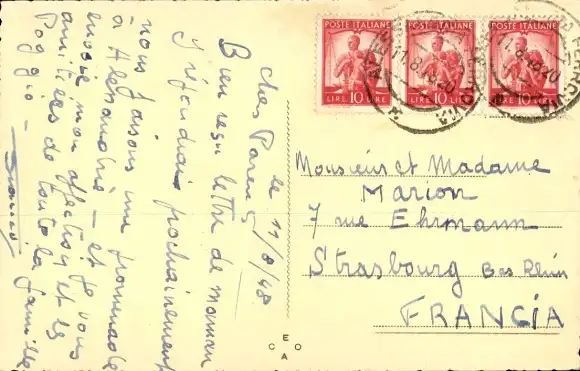 le 11/8/48
Chers Parents
Bien reçu lettre de maman
J'y répondrais prochainement
nous faisons une promenade
à Alessandrie - et je vous
envoie mon affection et les
amitiés de toute la famille
Poggio -
POSTE ITALIANE
LIRE 10 LIRE
POSTE ITALIANE
LIRE 10 LIRE
POSTE ITALIANE
LIRE 10 LIRE
Monsieur et Madame
Marion
7 rue Ehrmann
Strasbourg Bas Rhin
FRANCIA
C E O A